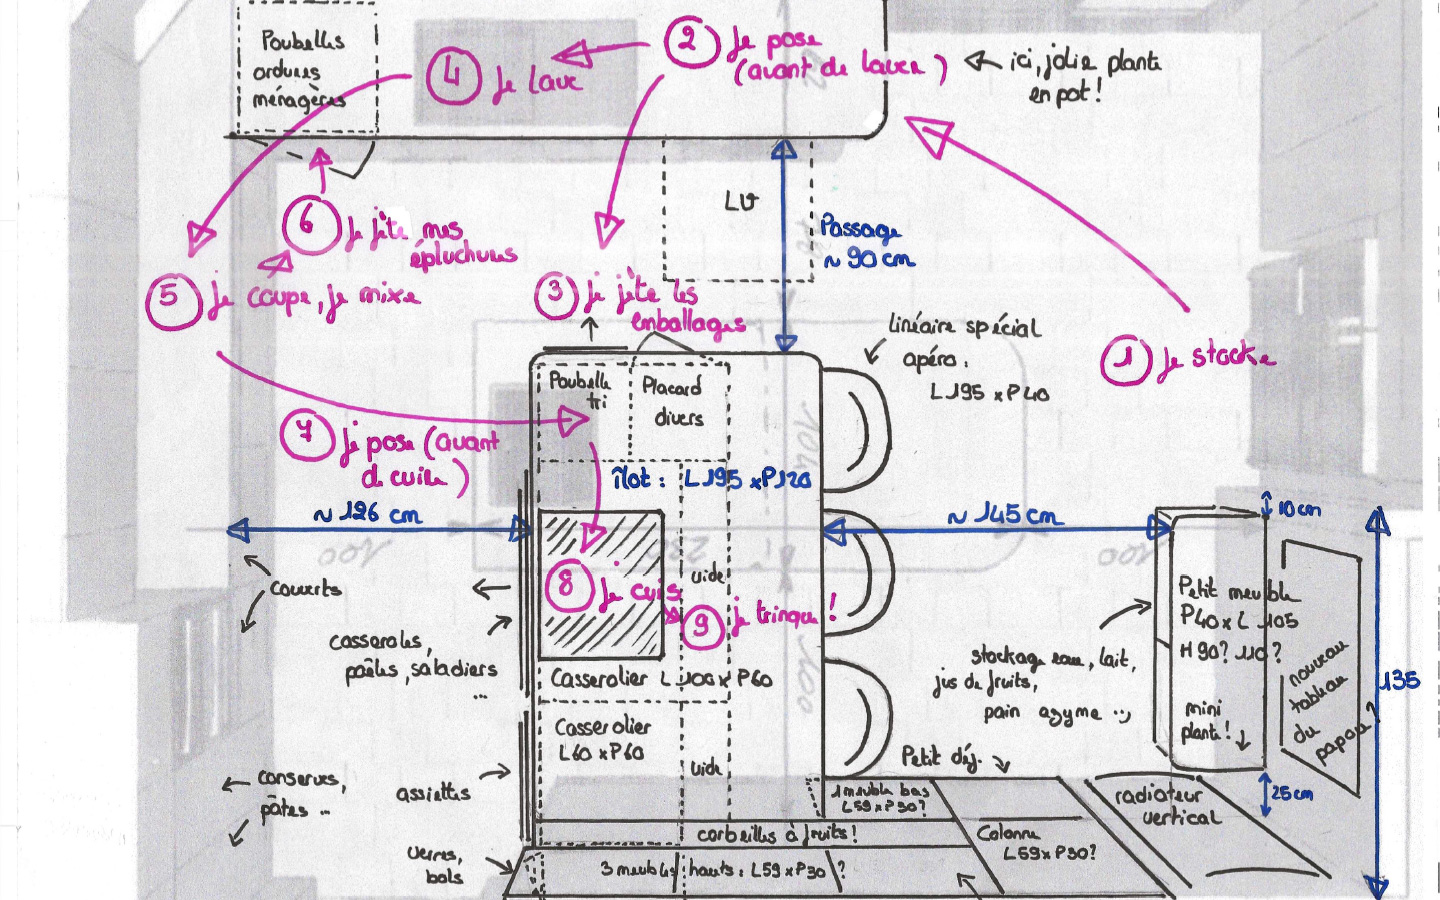 Poubelles
ordures
ménagères
④ Je lave
② Je pose
(avant de laver)
ici, jolie plante
en pot!
LV
Passage
~ 90 cm
⑥ Je jète mes
épluchures
⑤ Je coupe, je mixe
③ Je jète les
emballages
① Je stocke
linéaire spécial
apéro:
L195 x P40
Poubelle
tri
Placard
divers
⑦ Je pose (avant
d cuire)
îlot: L195 x P120
~ 126 cm
~ 145 cm
10 cm
100
230
100
104
100
⑧ Je cuis
vide
⑨ je trinque!
couverts
casseroles,
poêles, saladiers
...
Casserolier L 100 x P60
Casserolier
L60 x P60
vide
Petit meuble
P40 x L 105
H 90? 110?
mini
plante!
nouveau
tableau
du
papa?
135
25 cm
stockage eau, lait,
jus de fruits,
pain azyme
Petit déj.
conserves,
pâtes ...
assiettes
verres,
bols
1 meuble bas
L59 x P30?
corbeilles à fruits!
Colonne
L59 x P30?
radiateur
vertical
3 meubles hauts: L59 x P30?